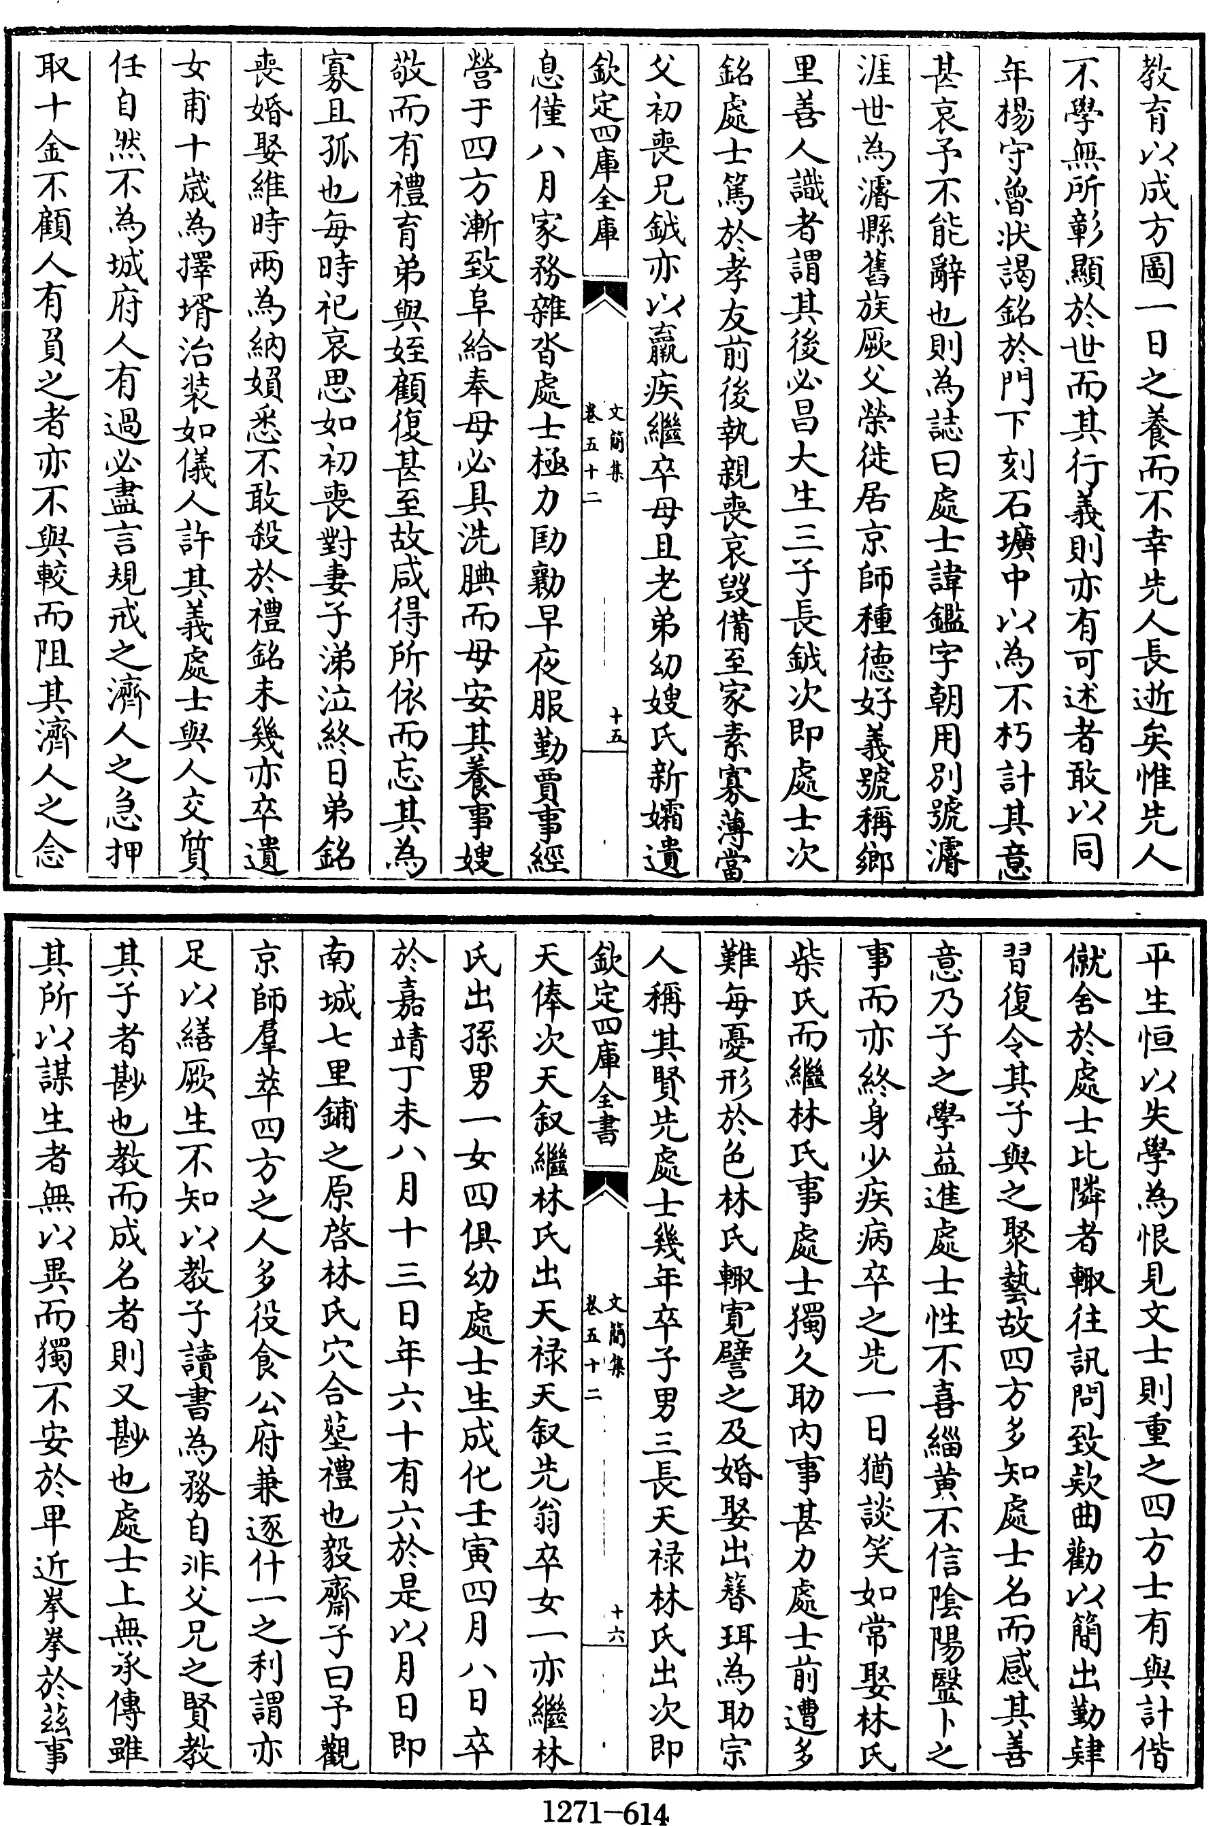 教育以成方圖一日之養而不幸先人長逝矣惟先人
不學無所彰顯於世而其行義則亦有可述者敢以同
年楊守魯狀謁銘於門下刻石壙中以為不朽計其意
甚哀予不能辭也則為誌曰處士諱鑑字朝用別號濬
涯世為濬縣舊族厥父榮徙居京師種德好義號稱鄉
里善人識者謂其後必昌大生三子長鉞次即處士次
銘處士篤於孝友前後執親喪哀毀備至家素寡薄當
父初喪兄鉞亦以羸疾繼卒母且老弟幼嫂氏新孀遺
欽定四庫全庫
文簡集
卷五十二
十五
息僅八月家務雜沓處士極力劻勷早夜服勤賈事經
營于四方漸致阜給奉母必具洗腆而母安其養事嫂
敬而有禮育弟與姪顧復甚至故咸得所依而忘其為
寡且孤也每時祀哀思如初喪對妻子涕泣終日弟銘
喪婚娶維時兩為納嬪悉不敢殺於禮銘未幾亦卒遺
女甫十歲為擇壻治裝如儀人許其義處士與人交質
任自然不為城府人有過必盡言規戒之濟人之急押
取十金不顧人有負之者亦不與較而阻其濟人之念
平生恒以失學為恨見文士則重之四方士有與計偕
僦舍於處士比隣者輙往訊問致欵曲勸以簡出勤肄
習復令其子與之聚藝故四方多知處士名而感其善
意乃子之學益進處士性不喜緇黄不信陰陽毉卜之
事而亦終身少疾病卒之先一日猶談笑如常娶林氏
柴氏而繼林氏事處士獨久助内事甚力處士前遭多
難每憂形於色林氏輙寛譬之及婚娶出簪珥為助宗
人稱其賢先處士幾年卒子男三長天祿林氏出次即
欽定四庫全書
文簡集
卷五十二
十六
天俸次天叙繼林氏出天祿天叙先翁卒女一亦繼林
氏出孫男一女四俱幼處士生成化壬寅四月八日卒
於嘉靖丁未八月十三日年六十有六於是以月日即
南城七里鋪之原啓林氏穴合塟禮也毅齋子曰予觀
京師羣萃四方之人多役食公府兼逐什一之利謂亦
足以繕厥生不知以教子讀書為務自非父兄之賢教
其子者尠也教而成名者則又尠也處士上無承傳雖
其所以謀生者無以異而獨不安於卑近拳拳於茲事
1271—614